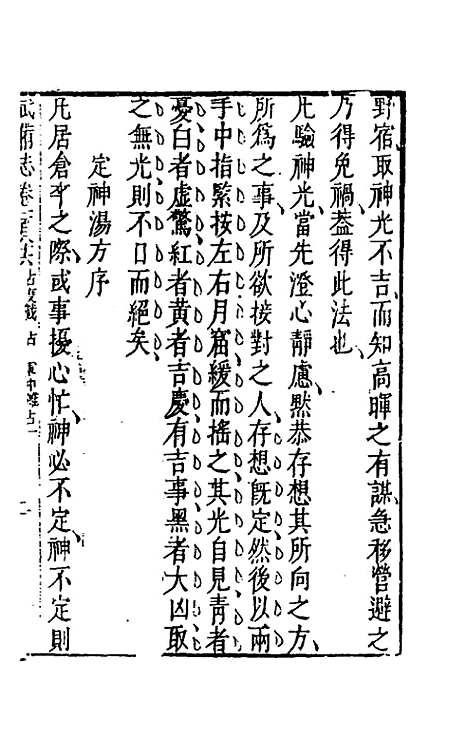 野宿取神光不吉而知高暉之有謀急移營避之
乃得免禍葢得此法也
凡驗神光當先澄心靜慮㸃恭存想其所向之方
所爲之事及所欲接對之人存想旣定然後以兩
手中指緊按左右月窟緩而揺之其光自見青者
憂白者虚驚紅者黄者吉慶有吉事黑者大凶取
之無光則不口而絕矣
定神湯方序
凡居倉卒之際或事擾心忙神必不定神不定則
武備志卷 占 軍中雜占一